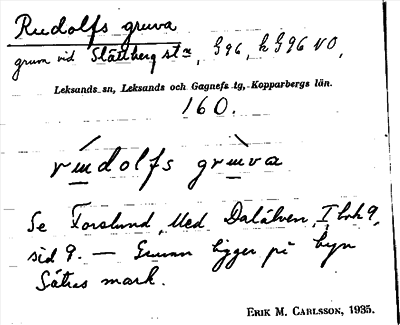 Rudolfs gruva
gruva vid Slättberg stn, G 96, h G 96 NO,
Leksands sn, Leksands och Gagnefs tg, Kopparbergs län.
160.
rudolfs gruva
Se Forslund, Med Dalälven, I bok 9,
sid 9. — Gruvan ligger på byn
Sätras mark.
ERIK M. CARLSSON, 1935.